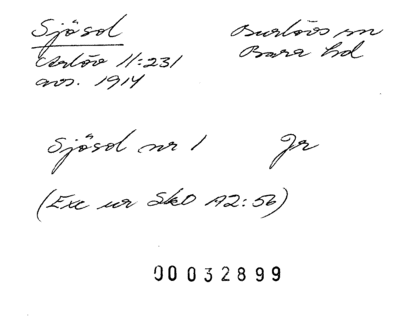 Sjösol Burlövs sn
Arlöv 11:231 Bara hd
avs. 1914
Sjösol nr 1 Jr
(Exc ur SkO A2:56)
00032899